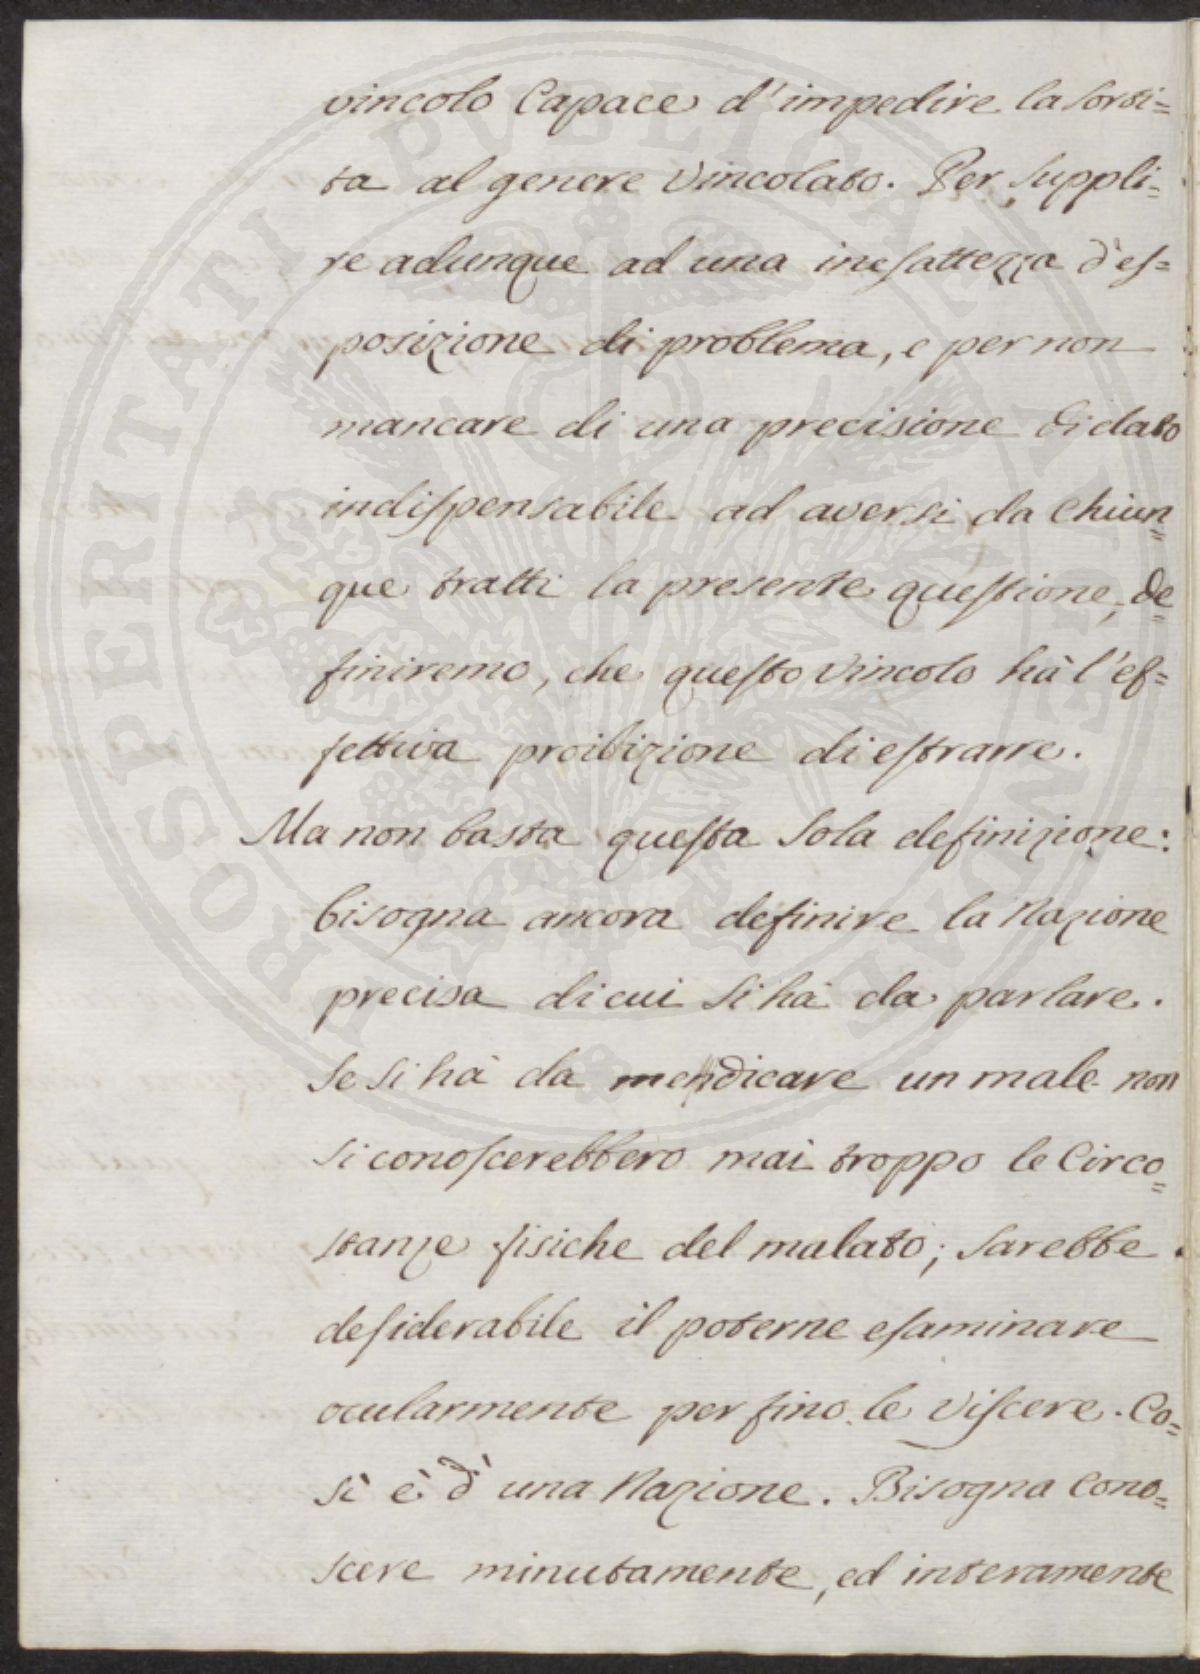 vincolo Capace d'impedire la sorti=
ta al genere vincolato. Per suppli=
re adunque ad una inesattezza d'es=
posizione di problema, e per non
mancare di una precisione di dato
indispensabile ad aversi da chiun=
que tratti la presente questione, de=
finiremo, che questo vincolo hà l'ef=
fettiva proibizione di estrarre.
Ma non basta questa sola definizione:
bisogna ancora definire la Nazione
precisa di cui si hà da parlare.
Se si hà da mendicare un male non
si conoscerebbero mai troppo le Circo=
stanze fisiche del malato; sarebbe
desiderabile il poterne esaminare
ocularmente per fino le viscere. Co=
sì è d'una Nazione. Bisogna Cono=
scere minutamente, ed interamente
PROSPERITATI PUBLICAE AUGENDAE